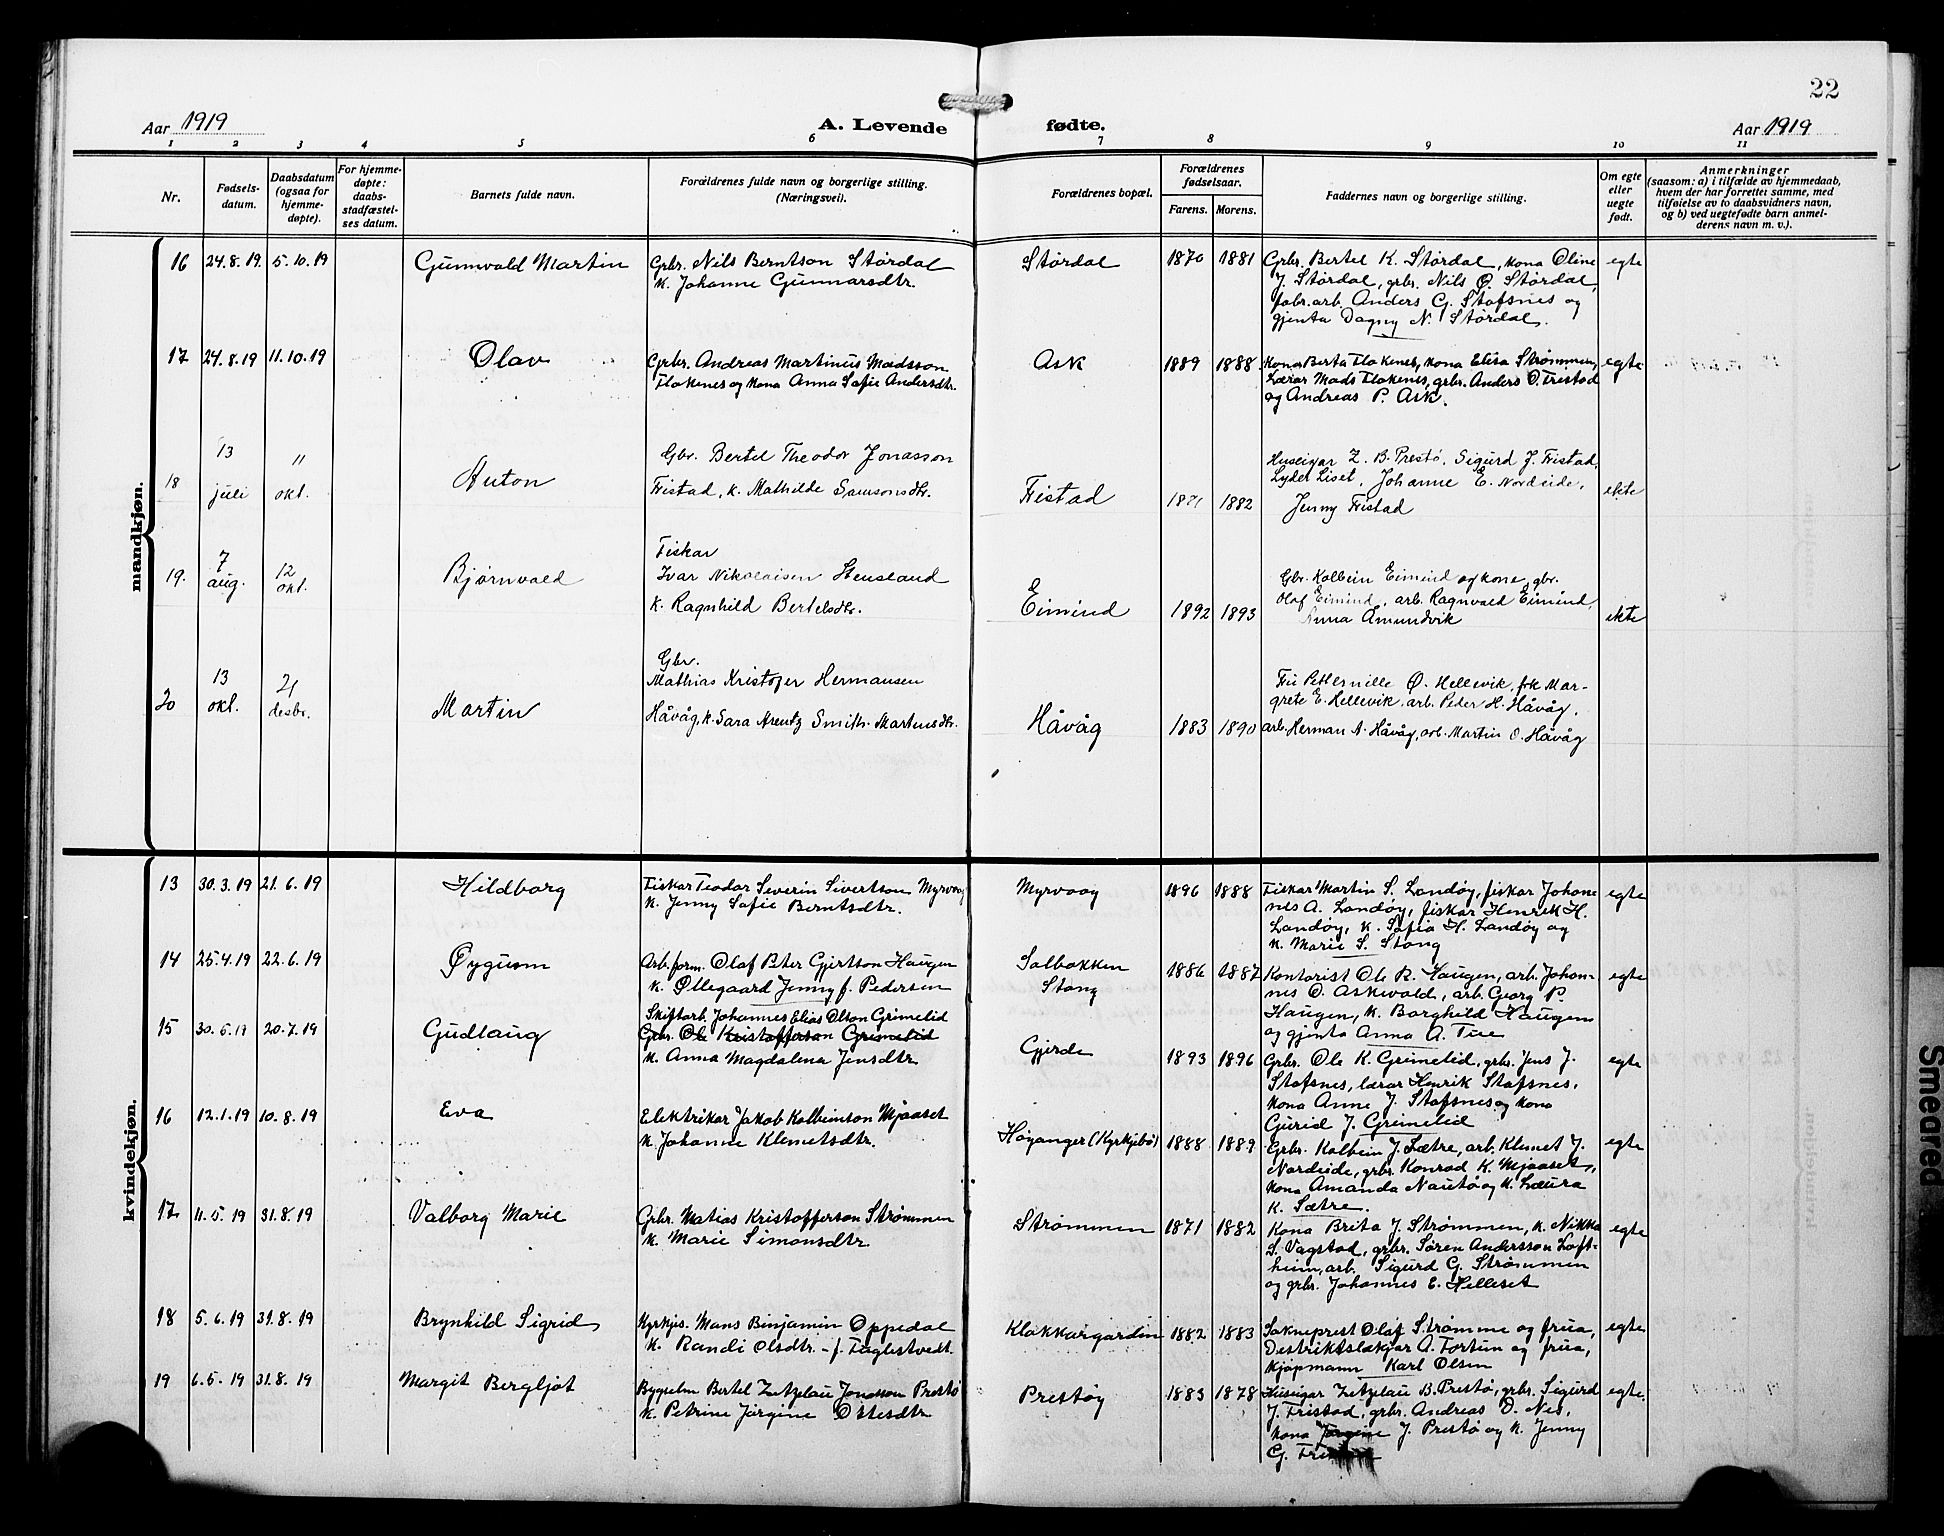 22
Aar 1919
A. Levende fødte.
Aar 1919
1 2 3 4 5 6 7 8 9 10 11
Nr.
Fødsels-
datum.
Daabsdatum
(ogsaa for
hjemme-
døpte).
For hjemme-
døpte:
daabs-
stadfæstel-
ses datum.
Barnets fulde navn.
Forældrenes fulde navn og borgerlige stilling.
(Næringsvei).
Forældrenes bopæl.
Forældrenes
fødselsaar.
Farens. Morens.
Faddernes navn og borgerlige stilling.
Om egte
eller
uegte
født.
Anmerkninger
(saasom: a) i tilfælde av hjemmedaab,
hvem der har forrettet samme, med
tilføielse av to daabsvidners navn,
og b) ved uegtefødte barn anmel-
derens navn m. v.).
mandkjøn.
16 24.8.19. 5.10.19 Gunnvald Martin
Grbr. Nils Berntson Størdal
k. Johanne Gunnarsdtr.
Størdal 1870 1881
Grbr. Bertel K. Størdal, kona Oline
J. Størdal, grbr. Nils O. Størdal,
fabr.arb. Anders G. Stafsnes og
gjenta Dagny N. Størdal.
egte
17 24.8.19 11.10.19 Olav
Grbr. Andreas Martinus Madsson
Flokenes og kona Anna Sofie Andersdtr.
Ask 1889 1888
Kona Berta Flokenes, kona Elisa Strømmen,
Lærar Mads Flokenes, grbr. Anders O. Fristad
og Andreas P. Ask.
egte
18 13 juli 11 okt. Anton
Gbr. Bertel Theodor Jonasson
Fristad, k. Mathilde Samsonsdtr.
Fristad 1882
Huseigar Z. B. Prestø, Sigurd J. Fristad,
Lyder Liset, Johanne E. Nordeide,
Jenny Fristad
ekte
19. 7 aug. 12 okt. Bjørnvald
Fiskar
Ivar Nikolaisen Stensland
k. Ragnhild Bertelsdtr.
Eimind 1892 1893
Gbr. Kolbein Eimind og kone, gbr.
Olaf Eimind, arb. Ragnvald Eimind,
Anna Amundvik
ekte
20 13 okt. 21 desbr. Martin
Gbr.
Mathias Kristofer Hermansen
Håvåg, k. Sara Arentz Smith Martinsdtr.
Håvåg 1883 1890
Fru Pethernille Ø. Hellevik, frk Mar-
grete E. Hellevik, arb. Peder H. Håvåg,
arb. Herman A. Håvåg, arb. Martin O. Håvåg
kvindekjøn.
13 30.3.19 21.6.19 Hildborg
Fiskar Teodor Severin Sivertson Myrvaag
k. Jenny Sofie Berntsdtr.
Myrvaag 1896 1888
Fiskar Martin S. Landøy, fiskar Johan-
nes A. Landøy, fiskar Henrik H.
Landøy, k. Sofia H. Landøy og
k. Marie S. Stang
egte
14 25.4.19 22.6.19 Øygunn
Arb.form. Olaf Peter Gjertson Haugen
k. Øllegaard Jenny f. Pedersen
Solbakken
Stang
1886 1887
Kontorist Ole R. Haugen, arb. Johan-
nes O. Askevold, arb. Georg P.
Haugen, k. Borghild Haugen
og gjenta Anna A. Tue
egte
15 30.5.19 20.7.19 Gudlaug
Skiftarb. Johannes Elias Olson Grimelid
Grbr. Ole Kristofferson Grimelid
k. Anna Magdalena Jensdtr
Gjerde 1893 1896
Grbr. Ole K. Grimelid, grbr. Jens J.
Stafsnes, lærar Henrik Stafsnes,
kona Anne J. Stafsnes og kona
Gurid J. Grimelid
egte
16 12.1.19 10.8.19 Eva
Elektrikar Jakob Kolbeinson Mjaaset
k. Johanne Klemetsdtr.
Høyanger (Kyrkjebø) 1888 1889
Grbr. Kolbein J. Sætre, arb. Klemet J.
Nordeide, grbr. Konrad K. Mjaaset,
kona Amanda Nautø og k. Laura
K. Sætre.
egte
17 11.5.19 31.8.19 Valborg Marie
Grbr. Matias Kristofferson Strømmen
k. Marie Simonsdtr
Strømmen 1871 1882
Kona Brita J. Strømmen, k. Nikka
S. Vagstad, grbr. Søren Andersson Loft-
heim, arb. Sigurd G. Strømmen
og grbr. Johannes E. Helleset
egte
18 5.6.19 31.8.19 Brynhild Sigrid
Kyrkjes. Mons Binjamin Oppedal
k. Randi Olsdtr. - f. Fuglestvedt.
Klokkargarden 1882 1883
Sokneprest Olaf Strømme og frua,
Destriktslækjar A. Fortun og frua,
kjøpmann Karl Olsen
egte
19 6.5.19 31.8.19 Margit Bergljot
Byggselm Bertel Zetzelau Jonasson Prestø
k. Petrine Jørgine Ottesdtr
Prestøy 1883 1878
Huseigar Zetzelau B. Prestø, grbr. Sigurd
J. Fristad, grbr. Andreas O. Nes,
kona Jørgine J. Prestø og k. Jenny
G. Fristad
egte.
Smeared